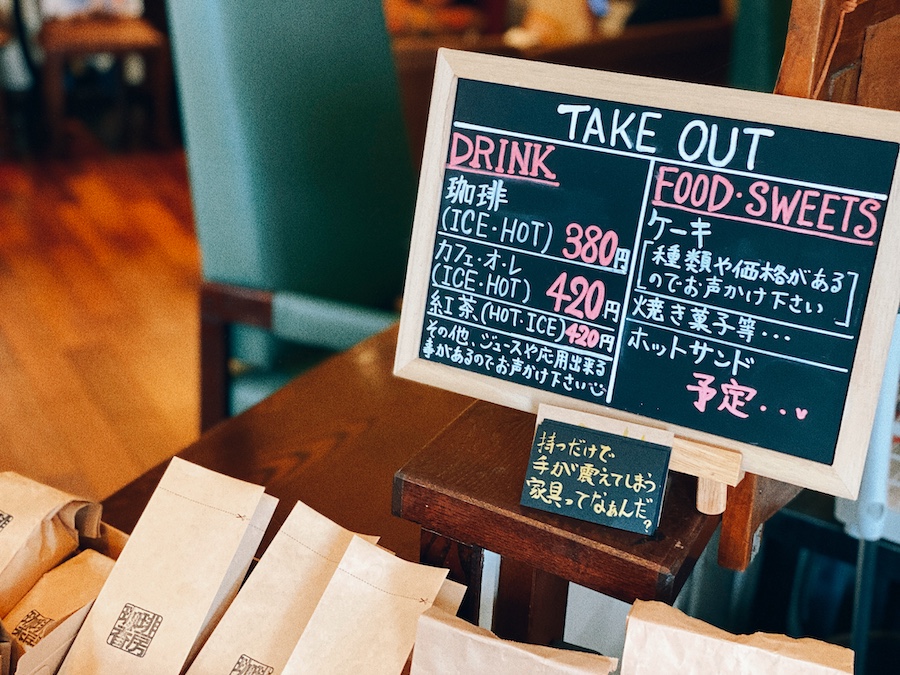 TAKE OUT
DRINK
珈琲
(ICE・HOT) 380円
カフェ・オ・レ
(ICE・HOT) 420円
紅茶(HOT・ICE)420円
その他、ジュースや応用出来る
事があるのでお声かけ下さい
FOOD・SWEETS
ケーキ
[種類や価格がある
のでお声かけ下さい]
焼き菓子等・・・
ホットサンド
予定・・・♥
持っだけで
手が震えてしまう
家具ってなぁんだ?